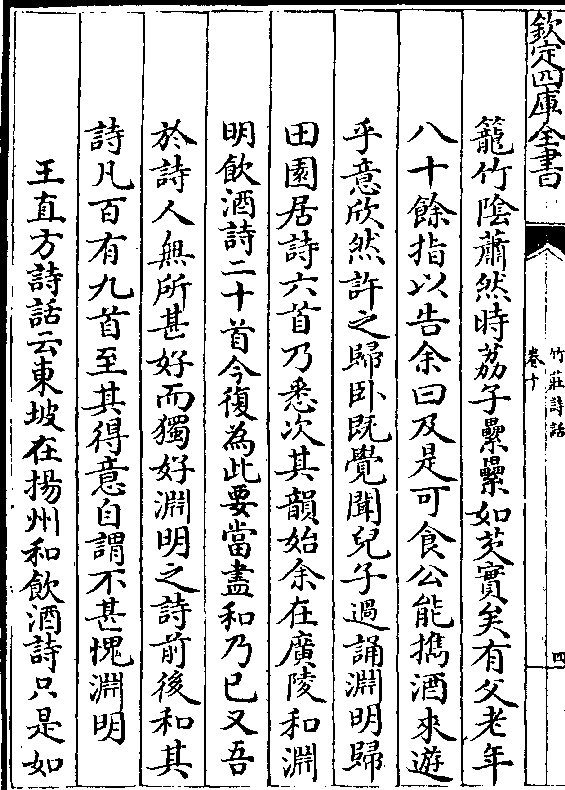 欽定四庫全書
竹莊詩話
卷十
四
籠竹陰蕭然時荔子纍纍如芡實矣有父老年
八十餘指以告余曰及是可食公能攜酒來遊
乎意欣然許之歸卧既覺聞兒子過誦淵明歸
田園居詩六首乃悉次其韻始余在廣陵和淵
明飲酒詩二十首今復為此要當盡和乃已又吾
於詩人無所甚好而獨好淵明之詩前後和其
詩凡百有九首至其得意自謂不甚愧淵明
王直方詩話云東坡在揚州和飲酒詩只是如